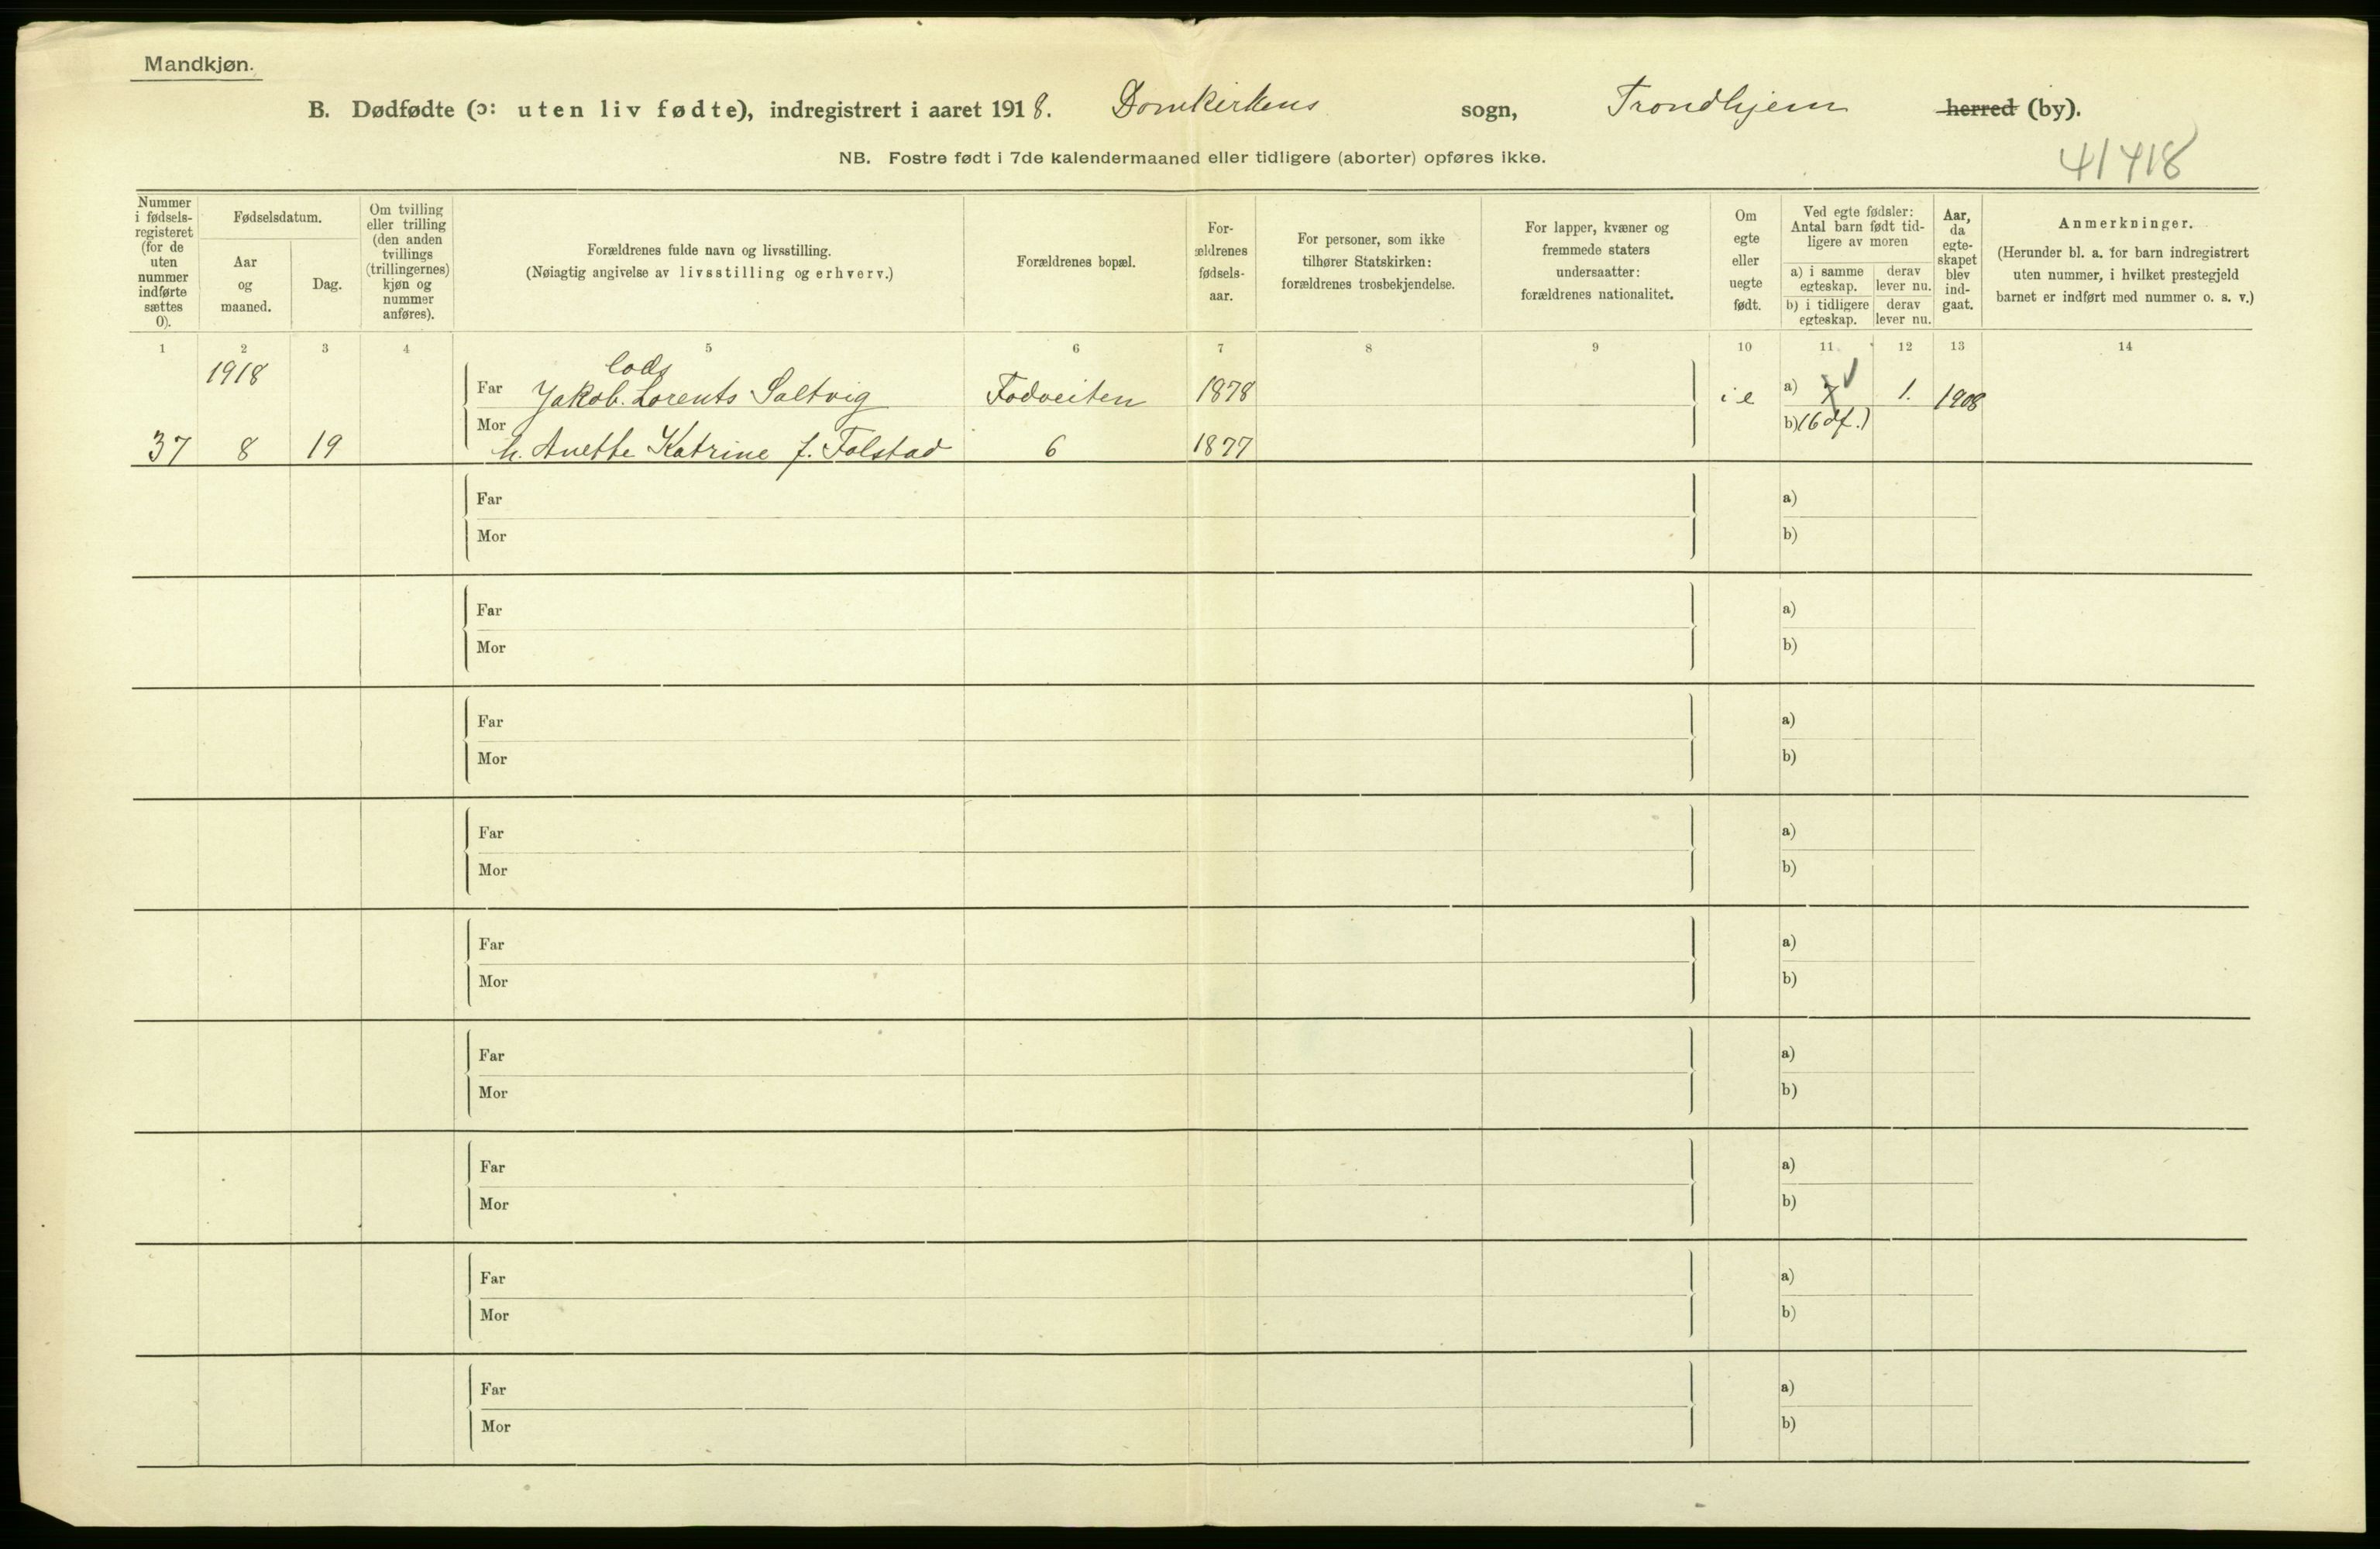 Mandkjøn.
B. Dødfødte (ɔ: uten liv fødte), indregistrert i aaret 1918. Domkirkens sogn, Trondhjem herred (by).
NB. Fostre født i 7de kalendermaaned eller tidligere (aborter) opføres ikke.
41418
Nummer i fødsels-registeret (for de uten nummer indførte sættes 0).
Fødselsdatum.
Aar og maaned.
Dag.
Om tvilling eller trilling (den anden tvillings (trillingernes) kjøn og nummer anføres).
Forældrenes fulde navn og livsstilling.
(Nøiagtig angivelse av livsstilling og erhverv.)
Forældrenes bopæl.
For-ældrenes fødsels-aar.
For personer, som ikke tilhører Statskirken: forældrenes trosbekjendelse.
For lapper, kvæner og fremmede staters undersaatter: forældrenes nationalitet.
Om egte eller uegte født.
Ved egte fødsler: Antal barn født tid-ligere av moren
a) i samme egteskap.
derav lever nu.
b) i tidligere egteskap.
derav lever nu.
Aar, da egte-skapet blev ind-gaat.
Anmerkninger.
(Herunder bl. a. for barn indregistrert uten nummer, i hvilket prestegjeld barnet er indført med nummer o. s. v.)
1 2 3 4 5 6 7 8 9 10 11 12 13 14
1918 lods
Far Jakob Lorents Saltvig Fodveiten 1878 i e a) 7 1. 1908
37 8 19 Mor h. Anette Katrine f. Folstad 6 1877 b) (6 df.)
Far a)
Mor b)
Far a)
Mor b)
Far a)
Mor b)
Far a)
Mor b)
Far a)
Mor b)
Far a)
Mor b)
Far a)
Mor b)
Far a)
Mor b)
Far a)
Mor b)